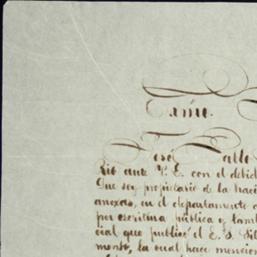 Exmo.
José Vallo
Rio ante V. E. con el debid
Que soy propietario de la haci
anexas, en el departamento d
por escritura pública y tamb
cial que publicó el E. S. Gil
mont, la cual hace mencion